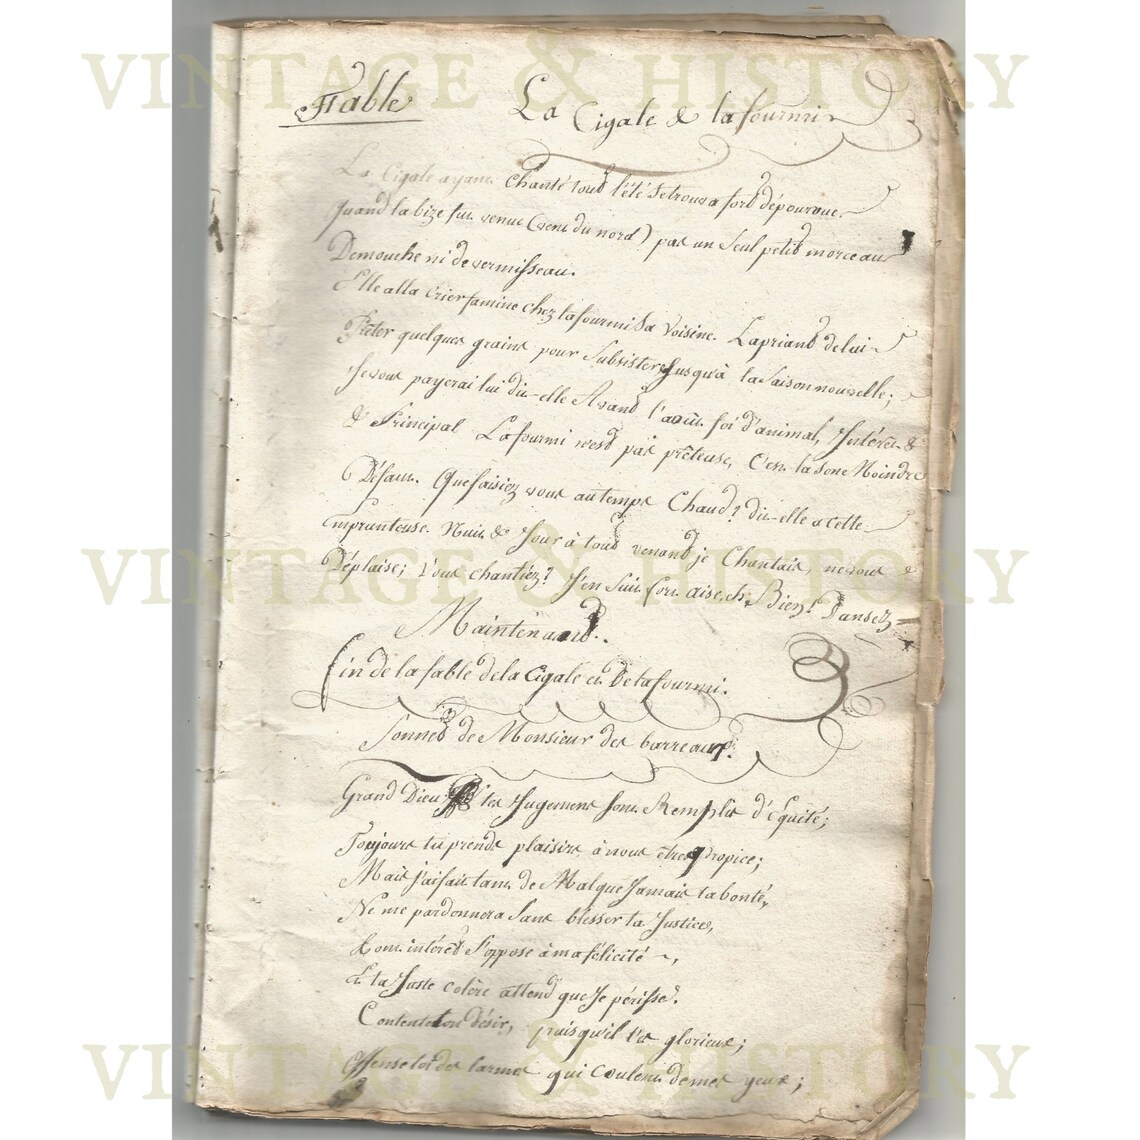 VINTAGE & HISTORY
Fable
La Cigale & la fourmi
La Cigale ayant Chanté tout l'été Setrouva fort dépourvue.
quand la bize fut venue (vent du nord) pas un Seul petit morceau
Demouche ni de vermisseau.
Elle alla Crier famine chez la fourmi Sa Voisine. La priant de lui
Prêter quelques grains pour Subsister Jusqu'à la Saison nouvelle;
Je vous payerai lui dit-elle Avant l'août foi d'animal, Intérêt &
& Principal La fourmi n'est pas prêteuse, C'est la Son Moindre
Défaut. Que faisiez vous au temps Chaud? dit-elle a cette
Emprunteuse. Nuit & Jour à tout venant je Chantais, ne vous
Déplaise; Vous chantiez? J'en Suis fort aise, eh, Bien! Dansez
Maintenant.
fin de la fable de la Cigale et De la fourmi.
Sonnet de Monsieur des barreaux.
Grand Dieu tes Jugemens Sont Remplis d'Equité;
Toujours tu prends plaisirs à nous être propice;
Mais j'ai fait tant de Mal que Jamais ta bonté,
Ne me pardonnera Sans blesser ta Justice,
VINTAGE & HISTORY
intérêt S'oppose à ma félicité,
Et ta Juste colère attend que Je périsse.
Contente ton désir, puisqu'il t'es glorieux;
Offense toi des larmes qui Coulent de mes yeux;
VINTAGE & HISTORY